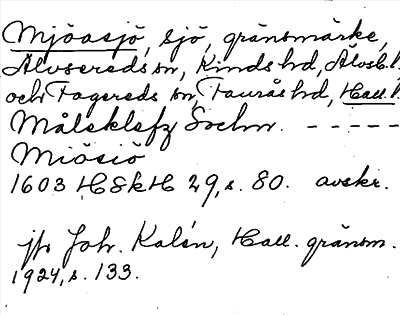 Mjöasjö, sjö, gränsmärke,
Älvsereds sn, Kinds hd, Älvsb. l.
och Fagereds sn, Faurås hd, Hall. l.
Måleklefz Sochn. - - - - -
Miösiö
1603 HSkH 29, s. 80. avskr.
jfr Joh. Kalén, Hall. gränsm.
1924, s. 133.